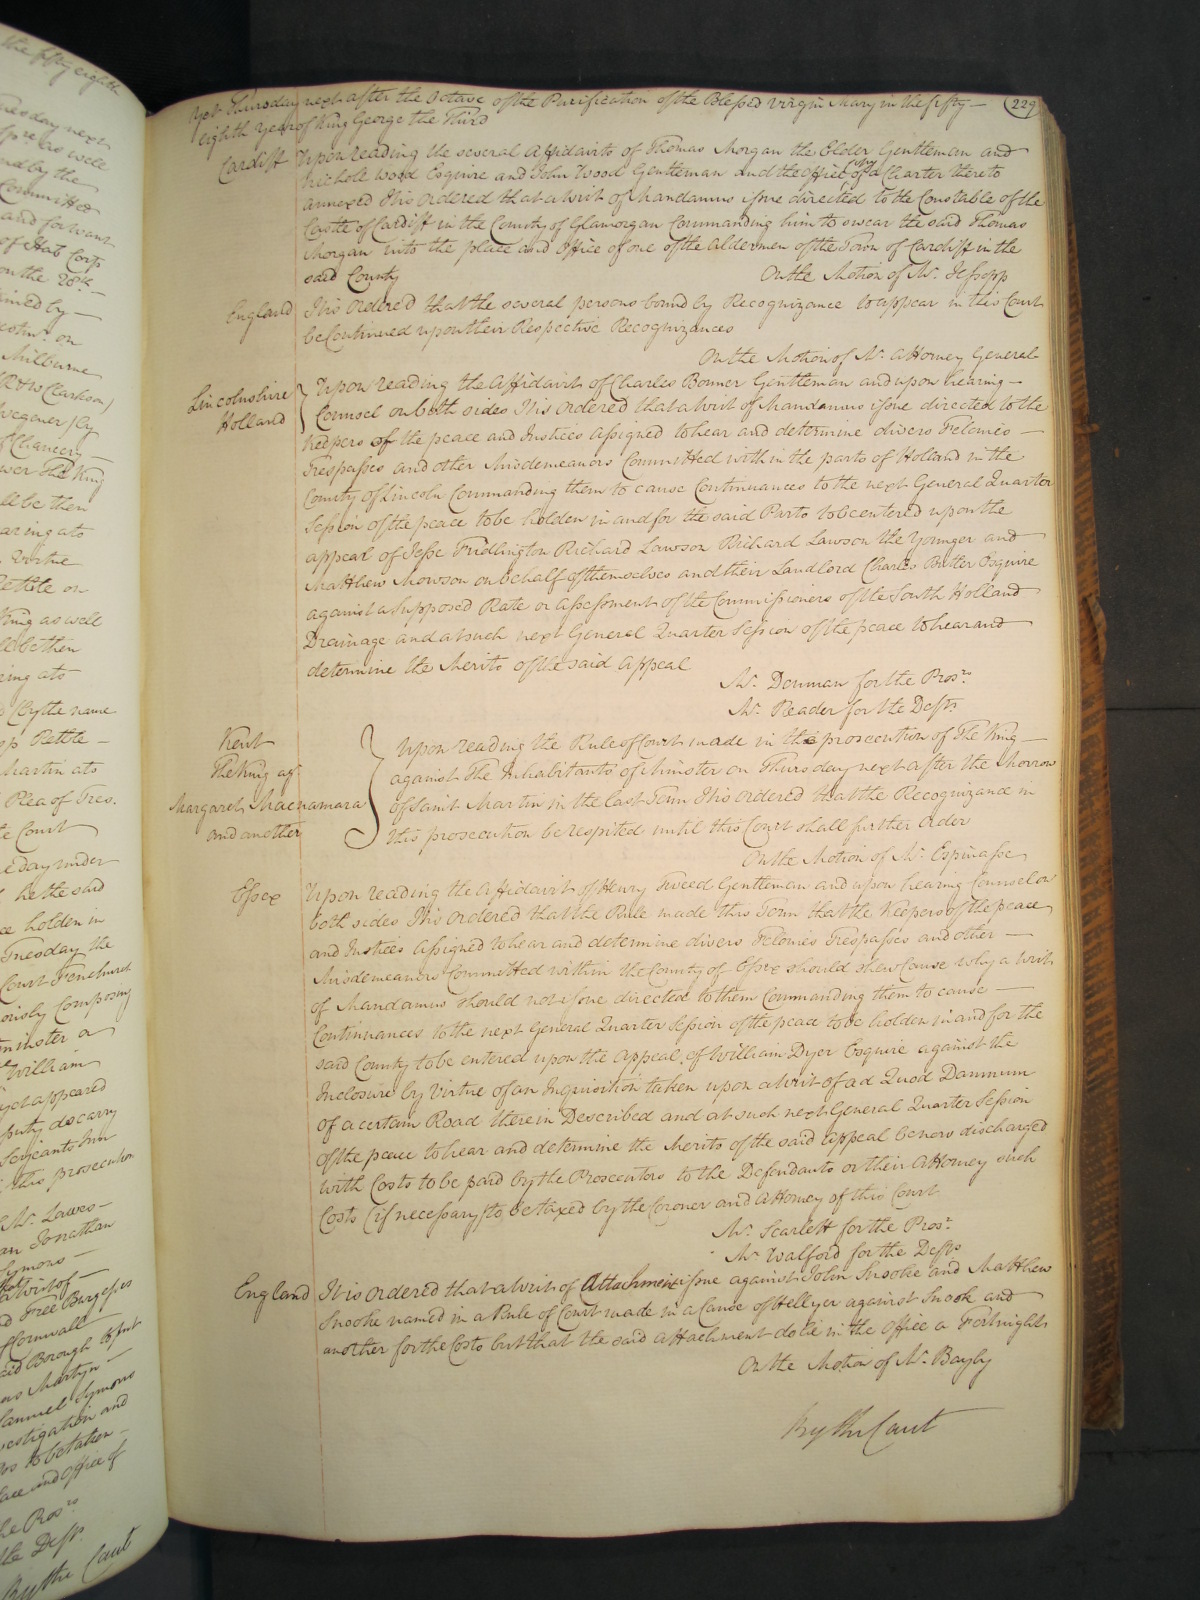 Yet Thursday next after the Octave of the Purification of the Blessed Virgin Mary in the fifty— 229
eighth Year of King George the Third
Cardiff Upon reading the several Affidavits of Thomas Morgan the Elder Gentleman and
Nichole Wood Esquire and John Wood Gentleman and the office Copy of a Charter thereto
annexed It is ordered that a Writ of Mandamus issue directed to the Constable of the
Castle of Cardiff in the County of Glamorgan Commanding him to swear the said Thomas
Morgan into the place and Office of one of the Aldermen of the Town of Cardiff in the
said County
On the Motion of Mr. Jessopp
England It is ordered that the several persons bound by Recognizance to appear in this Court
be Continued upon their Respective Recognizances
On the Motion of Mr. Attorney General
Lincolnshire Upon reading the Affidavit of Charles Bonner Gentleman and upon hearing—
Holland Counsel on both sides It is ordered that a Writ of Mandamus issue directed to the
keepers of the peace and Justices assigned to hear and determine divers Felonies—
Trespasses and other Misdemeanors Committed within the parts of Holland in the
County of Lincoln Commanding them to cause Continuances to the next General Quarter
Session of the peace to be holden in and for the said Parts to be entered upon the
appeal of Jesse Fridlington Richard Lawson Richard Lawson the Younger and
Matthew Mowson on behalf of themselves and their Landlord Charles Butler Esquire
against a supposed Rate or assessment of the Commissioners of the South Holland
Drainage and at such next General Quarter Session of the peace to hear and
determine the Merits of the said Appeal
Mr. Denman for the Prosrs.
Mr. Reader for the Defts.
Kent
The King agt
Margaret Macnamara
and another
Upon reading the Rule of Court made in the prosecution of The King—
against The Inhabitants of Minster on Thursday next after the Morrow
of Saint Martin in the last Term It is ordered that the Recognizance in
this prosecution be respited until this Court shall further Order
On the Motion of Mr. Espinasse
Essex Upon reading the Affidavit of Henry Tweed Gentleman and upon hearing Counsel on
both sides It is ordered that the Rule made this Term that the Keepers of the peace
and Justices assigned to hear and determine divers Felonies Trespasses and other—
Misdemeanors Committed within the County of Essex should shew Cause why a Writ
of Mandamus should not issue directed to them Commanding them to cause—
Continuances to the next General Quarter Session of the peace to be holden in and for the
said County to be entered upon the Appeal of William Dyer Esquire against the
Inclosure by Virtue of an Inquisition taken upon a Writ of ad Quod Damnum
of a certain Road therein Described and at such next General Quarter Session
of the peace to hear and determine the Merits of the said Appeal be now discharged
with Costs to be paid by the Prosecutors to the Defendants or their Attorney such
Costs (if necessary) to be taxed by the Coroner and Attorney of this Court
Mr. Scarlett for the Prosr.
Mr. Walford for the Defts
England It is ordered that a Writ of Attachment issue against John Snooke and Matthew
Snooke named in a Rule of Court made in a Cause of Hellyer against Snook and
another for the Costs but that the said Attachment do lie in the Office a Fortnight
On the Motion of Mr. Bayly
By the Court
the fifty eighth
as well
and by the
Committed
and for want
of Hab Corp
on the 28th—
on
Milburne
of Chancery—
the King
ll be then
Virtue
Pettite on
King as well
(by the name
Martin ats
Plea of Tres.
Court
day under
he the said
holden in
Tuesday the
Court Fenchurch
Composing
minster a
William
yet appeared
puty do carry
Serjeants Inn
this prosecution
Mr. Lawes—
an Jonathan
Symons—
a Writ of—
Free Burgesses
of Cornwall—
said Borough
Martyn—
Samuel Symons
vestigation and
to be taken—
place and Office of
he Prosrs
the Defts.
By the Court